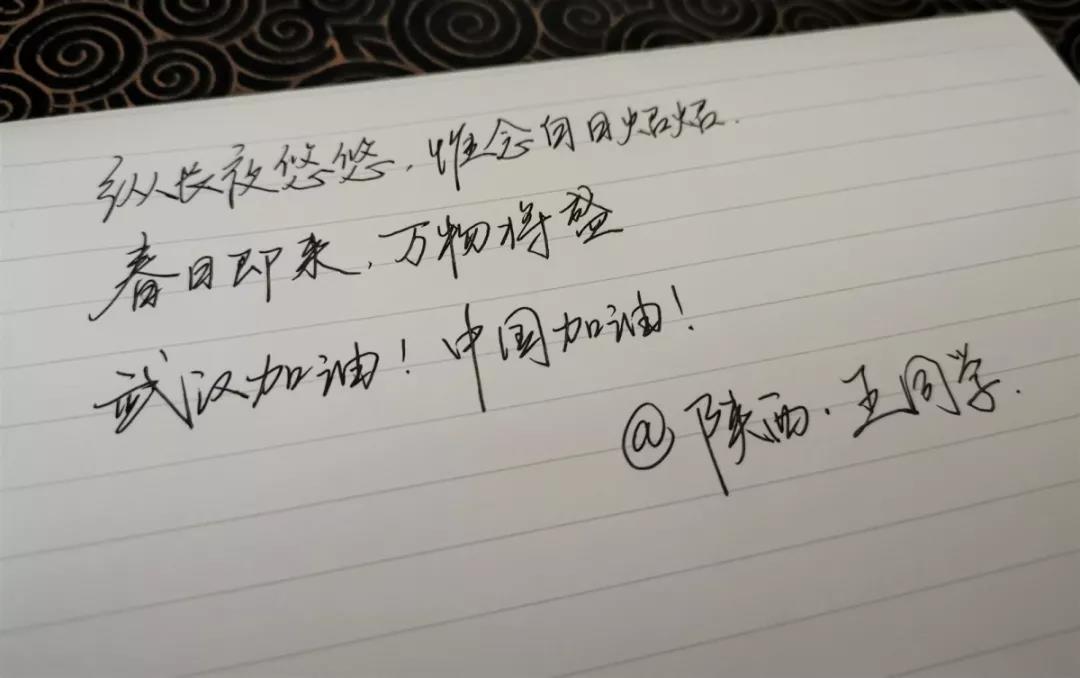 纵长夜悠悠，惟念白日炤炤.
春日即来，万物将盛
武汉加油！中国加油！
@陕西·王同学.